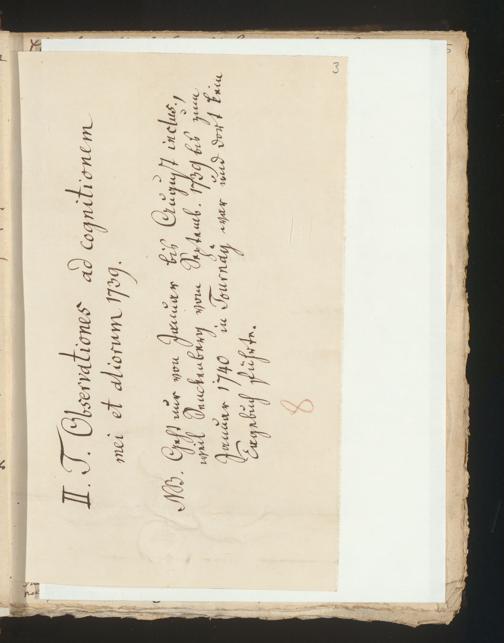 II. T. Observationes ad cognitionem
mei et aliorum 1739.
NB. Geht nur von Januar bis August inclus.,
weil Senckenberg vom Septemb. 1739 bis zum
Januar 1740 in Tournay war und dort kein
Tagebuch führte.
8
3